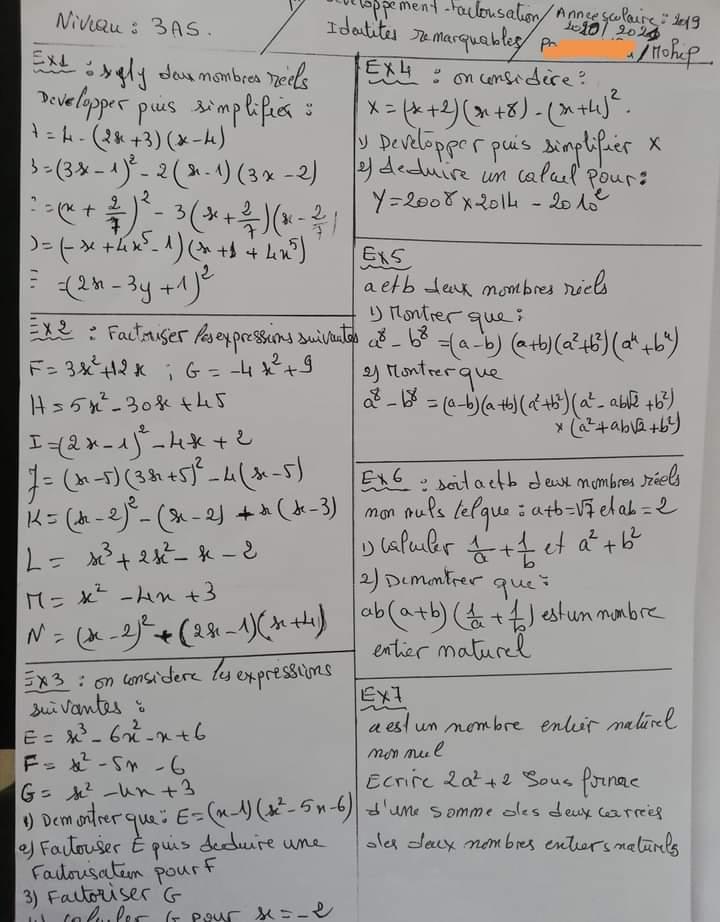 Niveau : 3AS.
Développement-Factorisation
Identités remarquables
Année scolaire : 2019
2020/2021
/Mohip
Ex1 : x et y deux nombres réels
Developper puis simplifier :
A = 4 - (2x+3)(x-4)
B = (3x-1)² - 2(x-1)(3x-2)
C = (x + 2/7)² - 3(x + 2/7)(x - 2/7)
D = (-x + 4x⁵ - 1)(x + 1 + 4x⁵)
E = (2x - 3y + 1)²
Ex2 : Factoriser les expressions suivantes
F = 3x² + 12x ; G = -4x² + 9
H = 5x² - 30x + 45
I = (2x-1)² - 4x + 2
J = (x-5)(3x+5)² - 4(x-5)
K = (x-2)² - (x-2) + x(x-3)
L = x³ + 2x² - x - 2
M = x² - 4x + 3
N = (x-2)² + (2x-1)(x+4)
Ex3 : on considere les expressions
suivantes :
E = x³ - 6x² - x + 6
F = x² - 5x - 6
G = x² - 4x + 3
1) Demontrer que : E = (x-1)(x² - 5x - 6)
2) Factoriser E puis deduire une
Factorisation pour F
3) Factoriser G
4) calculer G pour x = -2
Ex4 : on considère :
X = (x+2)(x+8) - (x+4)².
1) Developper puis simplifier X
2) deduire un calcul pour :
Y = 2008 x 2014 - 2010²
Ex5
a et b deux nombres réels
1) Montrer que :
a⁸ - b⁸ = (a-b)(a+b)(a²+b²)(a⁴+b⁴)
2) Montrer que
a⁸ - b⁸ = (a-b)(a+b)(a²+b²)(a² - ab√2 + b²)
x (a² + ab√2 + b²)
Ex6 : soit a et b deux nombres réels
non nuls tel que : a+b = √7 et ab = 2
1) Calculer 1/a + 1/b et a² + b²
2) Demontrer que :
ab(a+b)(1/a + 1/b) est un nombre
entier naturel
Ex7
a est un nombre entier naturel
non nul
Ecrire 2a² + 2 sous forme
d'une somme des deux carrées
des deux nombres entiers naturels